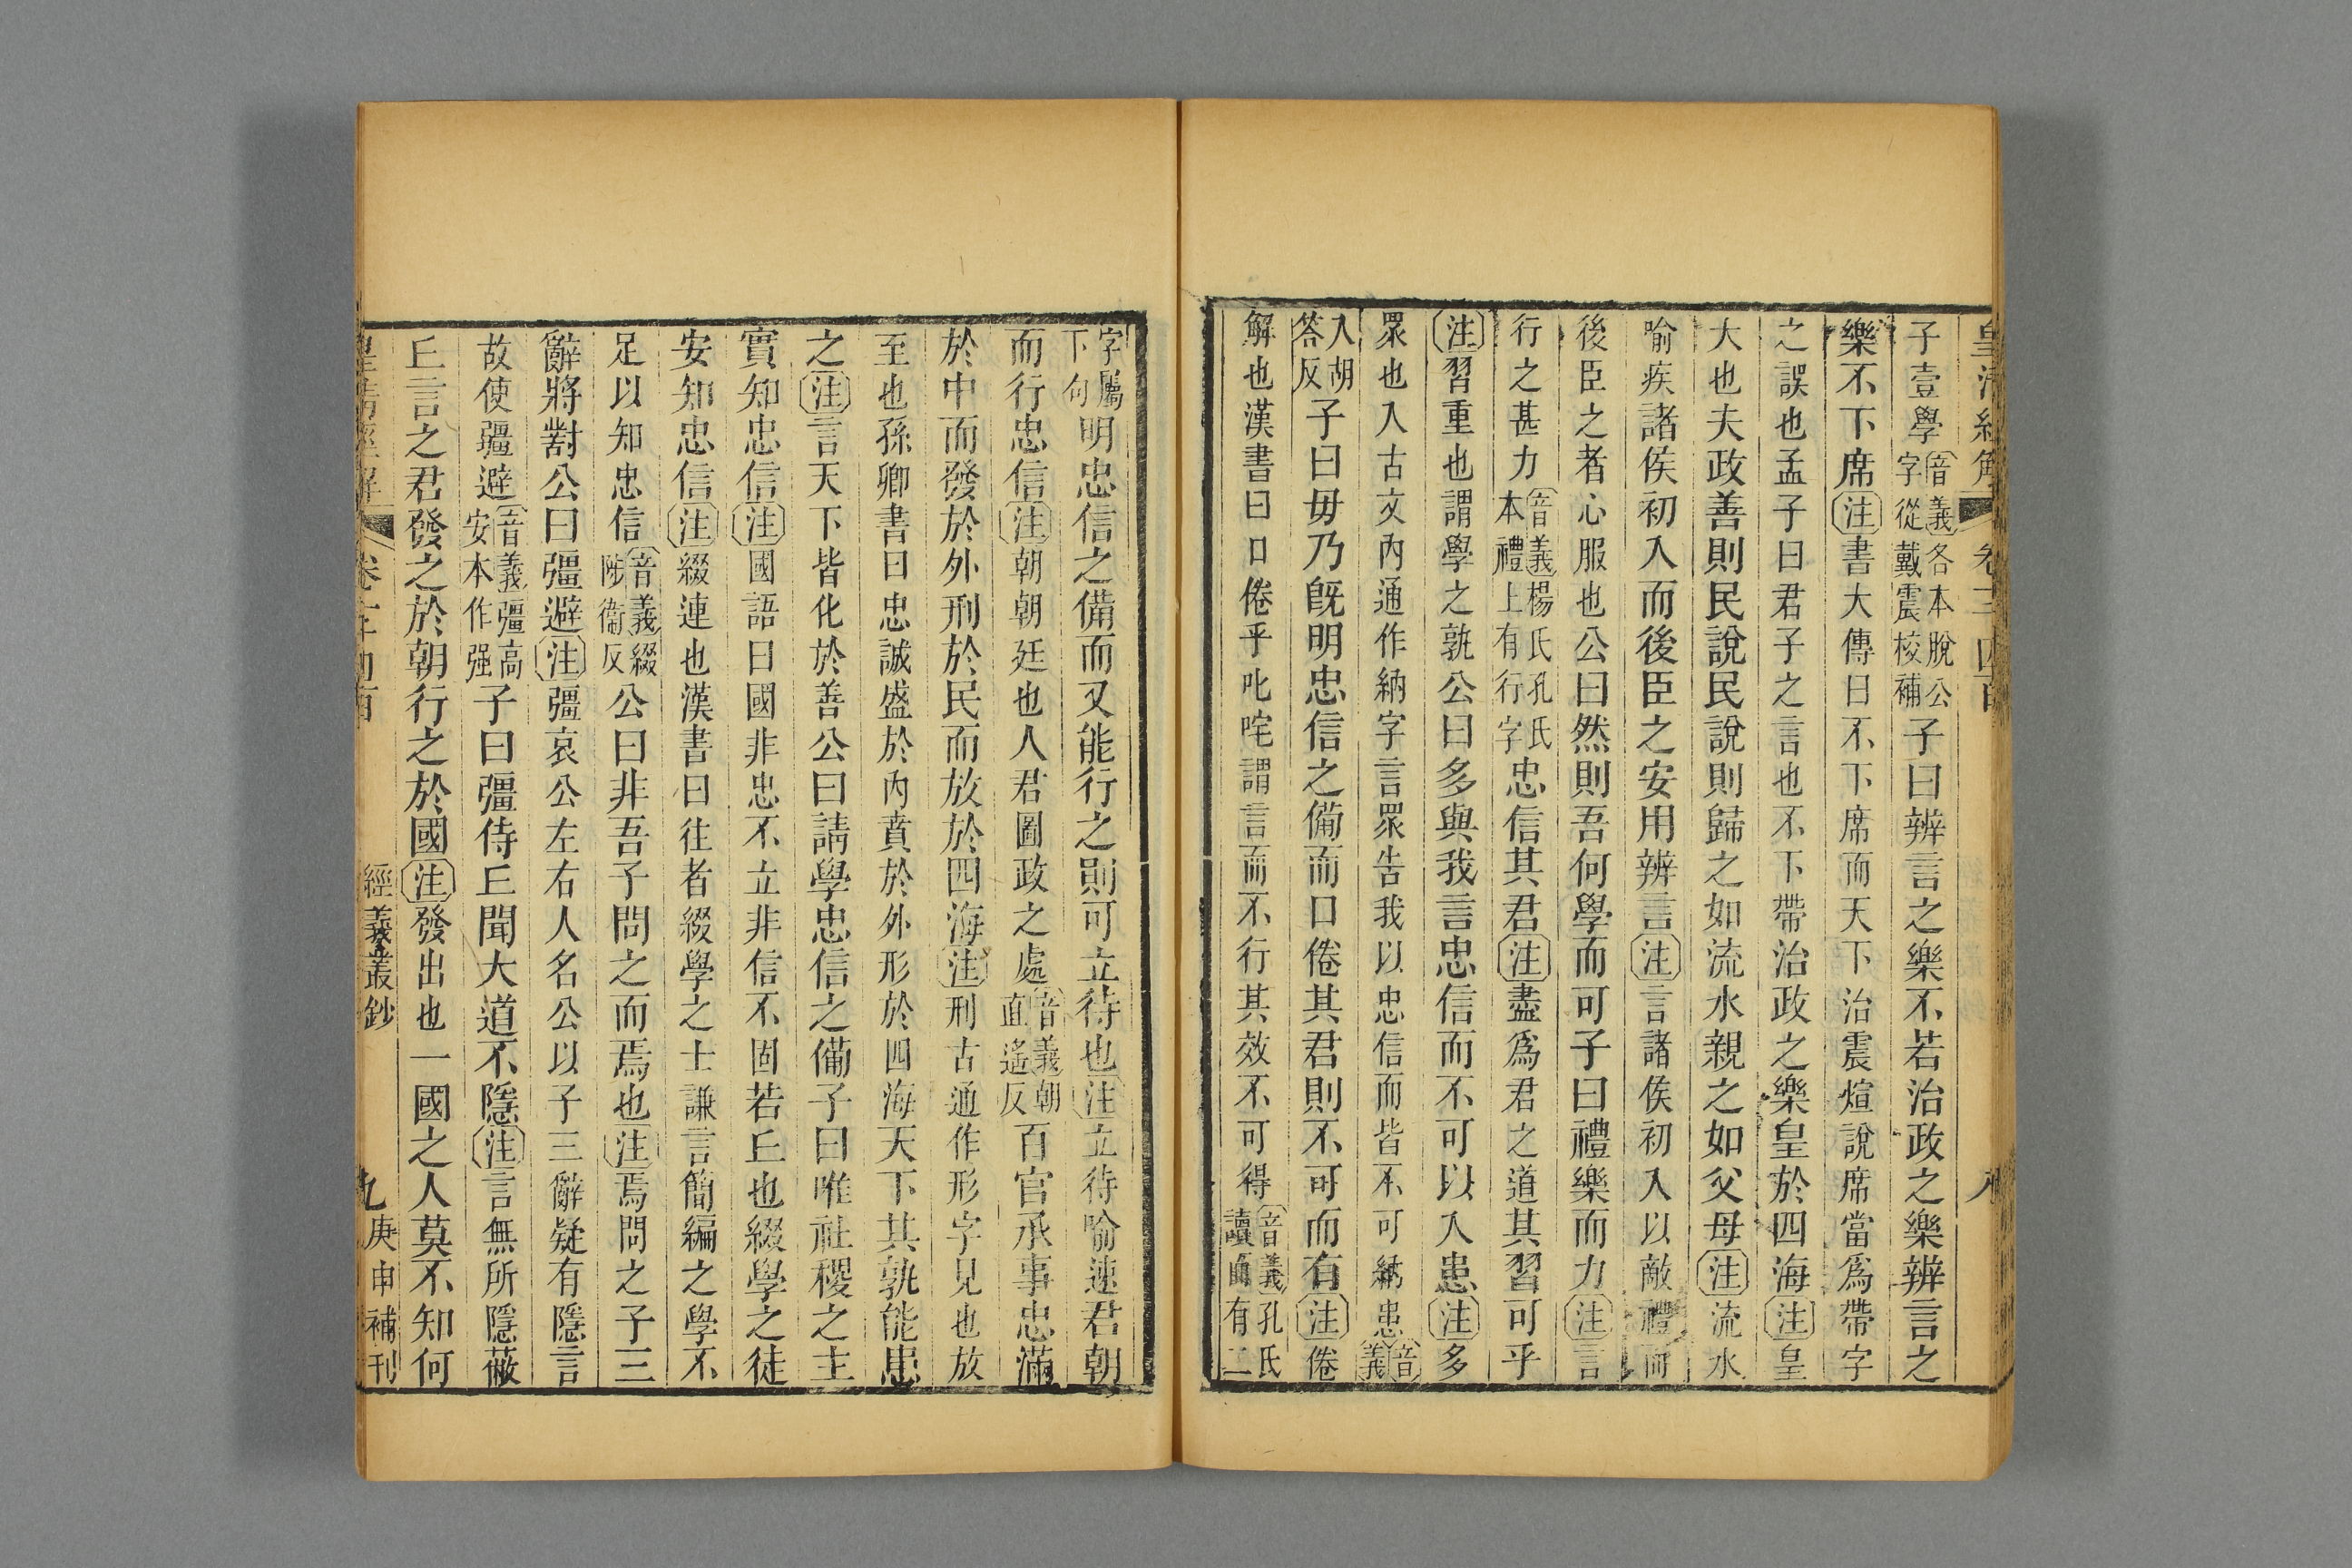 皇清經解 卷千四百 八
子壹學音義各本脫公字從戴震校補子曰辨言之樂不若治政之樂辨言之
樂不下席注書大傳曰不下席而天下治震煊說席當爲帶字
之誤也孟子曰君子之言也不下帶治政之樂皇於四海注皇
大也夫政善則民說民說則歸之如流水親之如父母注流水
喻疾諸侯初入而後臣之安用辨言注言諸侯初入以敵禮而
後臣之者心服也公曰然則吾何學而可子曰禮樂而力注言
行之甚力音義楊氏孔氏本禮上有行字忠信其君注盡爲君之道其習可乎
注習重也謂學之孰公曰多與我言忠信而不可以入患注多
眾也入古文內通作納字言眾告我以忠信而皆不可納患音義
入胡荅反子曰毋乃旣明忠信之備而口倦其君則不可而有注倦
解也漢書曰口倦乎叱咤謂言而不行其效不可得音義孔氏讀有二
字屬下句明忠信之備而又能行之則可立待也注立待喻速君朝
而行忠信注朝朝廷也人君圖政之處音義朝直遙反百官承事忠滿
於中而發於外刑於民而放於四海注刑古通作形字見也放
至也孫卿書曰忠誠盛於內賁於外形於四海天下其孰能患
之注言天下皆化於善公曰請學忠信之備子曰唯社稷之主
實知忠信注國語曰國非忠不立非信不固若丘也綴學之徒
安知忠信注綴連也漢書曰往者綴學之士謙言簡編之學不
足以知忠信音義綴陟衞反公曰非吾子問之而焉也注焉問之子三
辭將對公曰彊避注彊哀公左右人名公以子三辭疑有隱言
故使彊避音義彊高安本作强子曰彊侍丘聞大道不隱注言無所隱蔽
丘言之君發之於朝行之於國注發出也一國之人莫不知何
皇清經解 卷千四百 經義叢鈔 九 庚申補刊